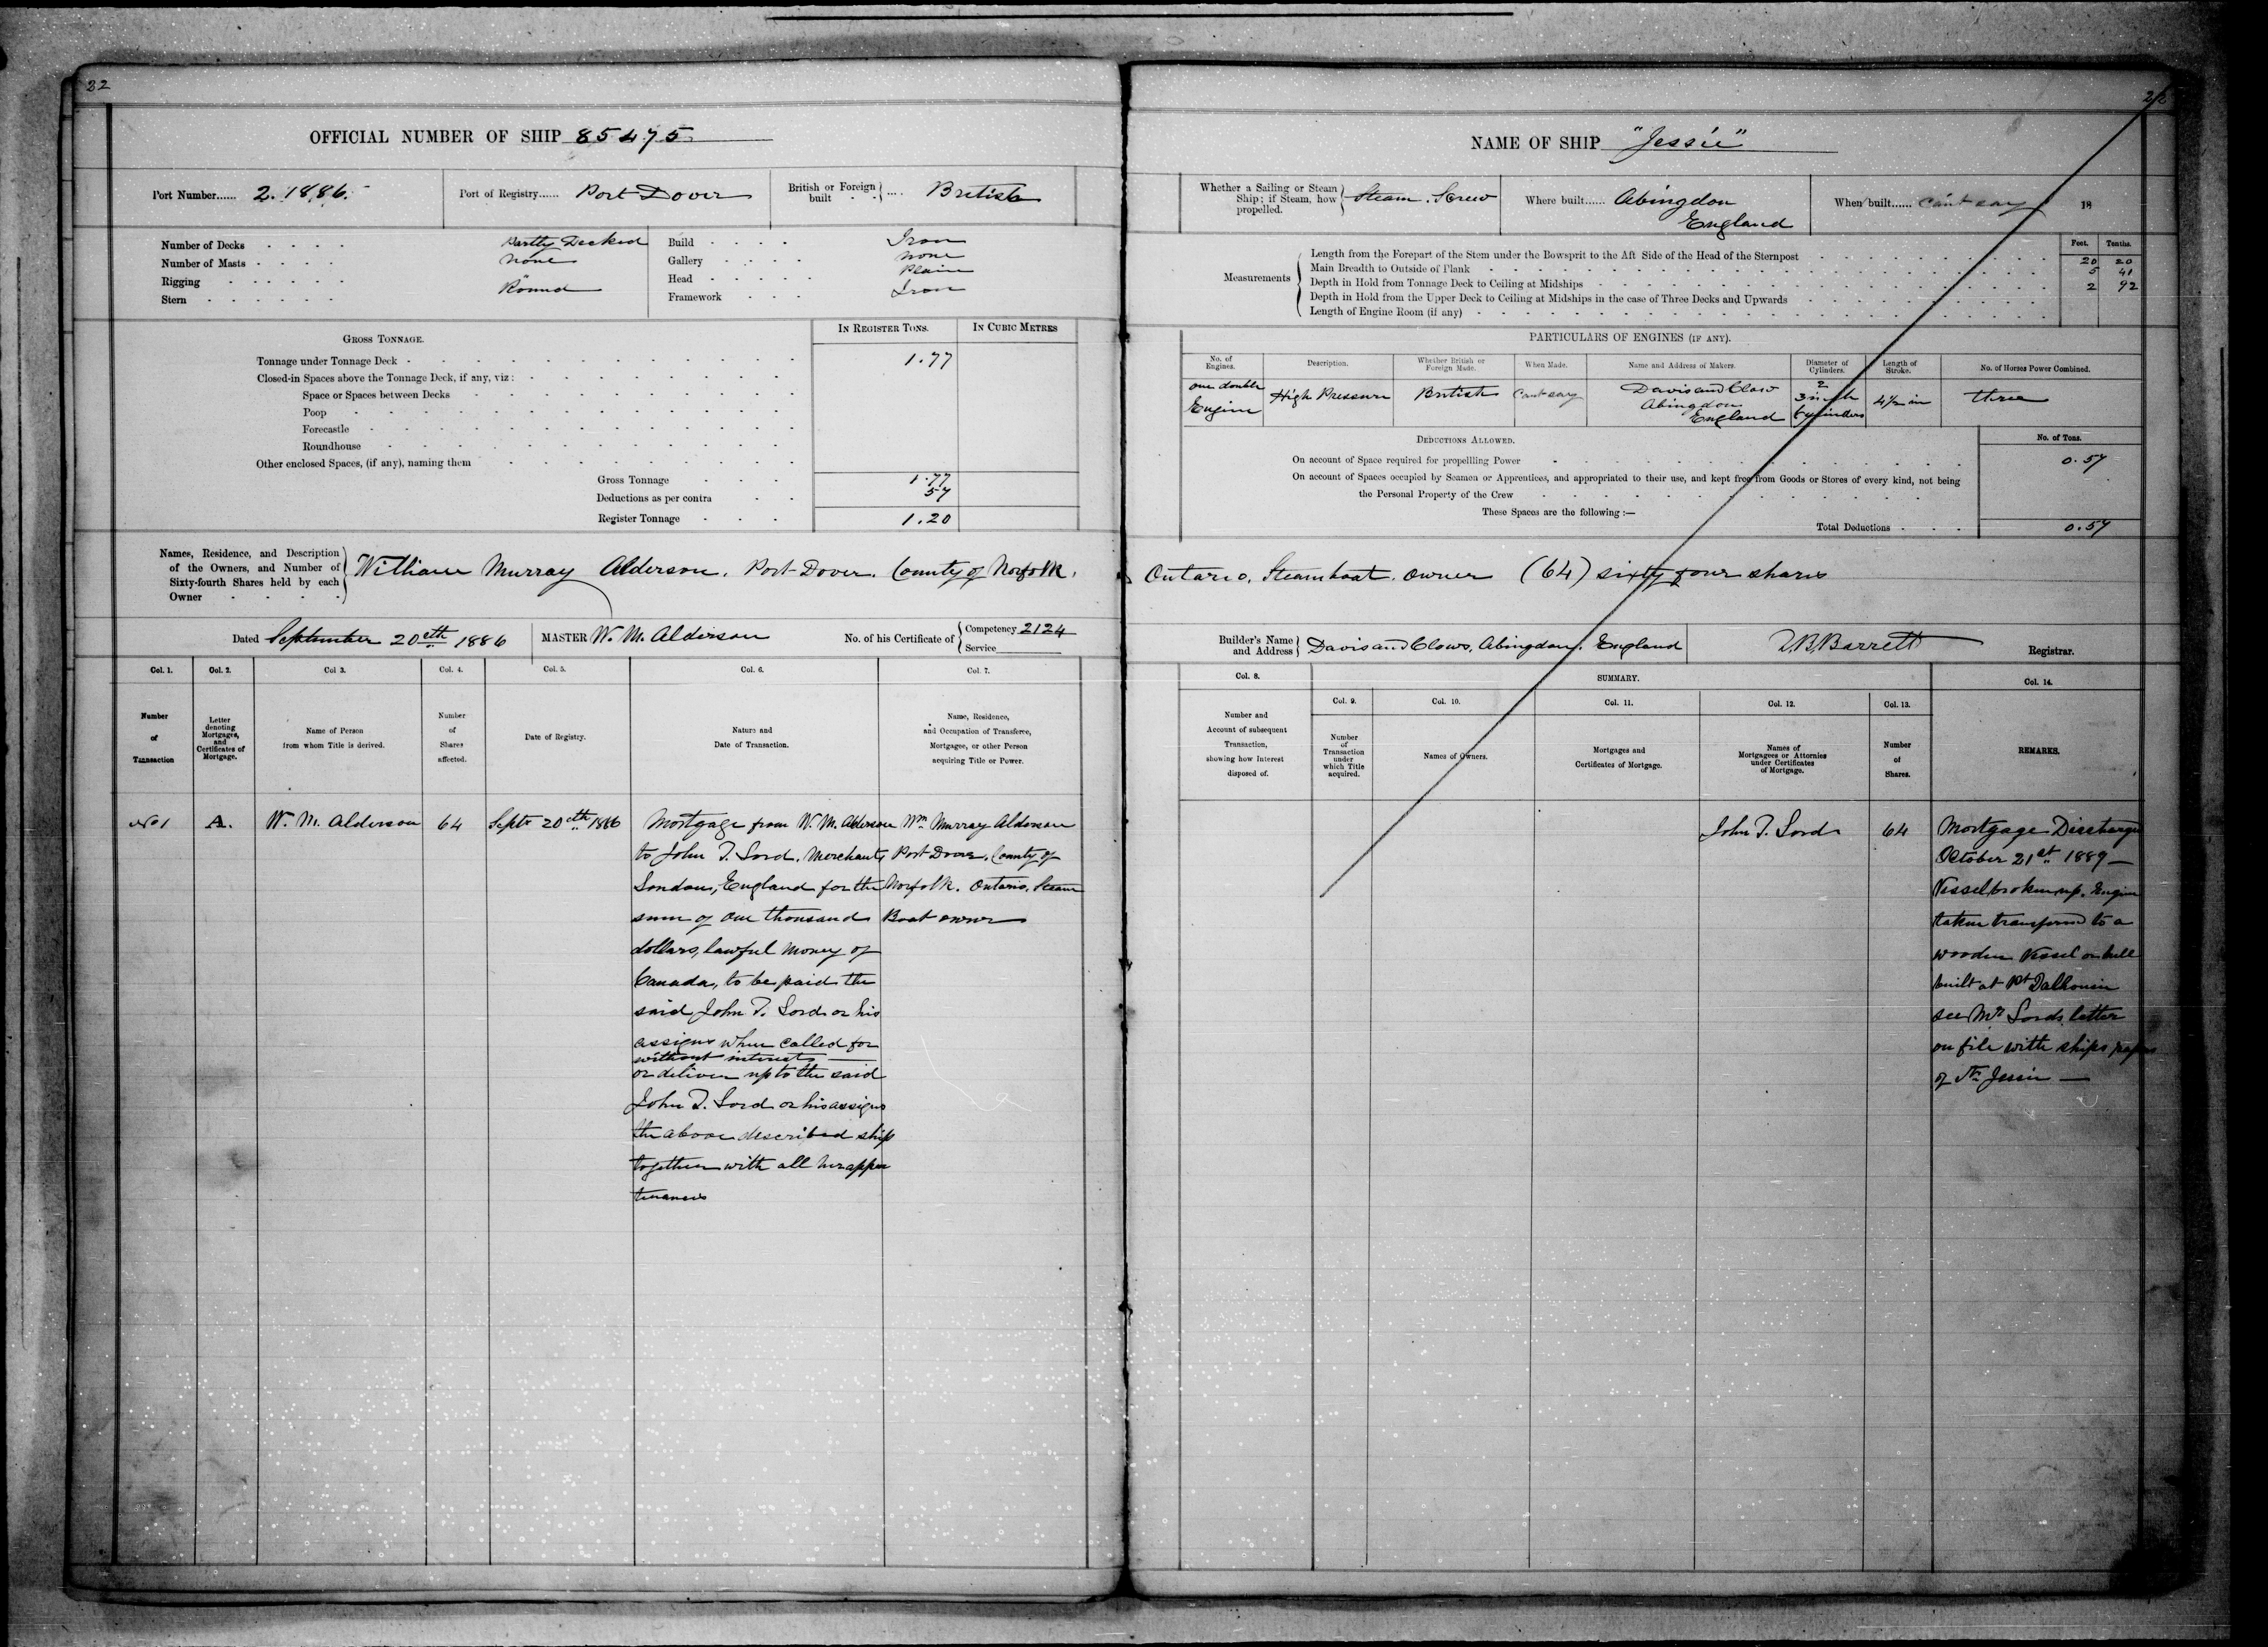 22
OFFICIAL NUMBER OF SHIP 85475
Port Number...... 2. 1886.
Port of Registry...... Port Dover
British or Foreign built .... British
Number of Decks Partly Decked
Number of Masts none
Rigging "
Stern Round
Build Iron
Gallery none
Head Plain
Framework Iron
GROSS TONNAGE.
IN REGISTER TONS.
IN CUBIC METRES
Tonnage under Tonnage Deck 1.77
Closed-in Spaces above the Tonnage Deck, if any, viz:
Space or Spaces between Decks
Poop
Forecastle
Roundhouse
Other enclosed Spaces, (if any), naming them
Gross Tonnage 1.77
Deductions as per contra 57
Register Tonnage 1.20
Names, Residence, and Description
of the Owners, and Number of
Sixty-fourth Shares held by each
Owner
William Murray Alderson. Port Dover. County of Norfolk.
Dated September 20eth 1886
MASTER W. M. Alderson
No. of his Certificate of Competency 2124
Service
Col. 1.
Number
of
Transaction
Col. 2.
Letter
denoting
Mortgages,
and
Certificates of
Mortgage.
Col 3.
Name of Person
from whom Title is derived.
Col. 4.
Number
of
Shares
affected.
Col. 5.
Date of Registry.
Col. 6.
Nature and
Date of Transaction.
Col. 7.
Name, Residence,
and Occupation of Transferee,
Mortgagee, or other Person
acquiring Title or Power.
No 1
A.
W. M. Alderson
64
Sept 20eth 1886
Mortgage from W. M. Alderson
to John T. Lord. Merchant,
London, England for the
sum of One thousand
dollars, lawful money of
Canada, to be paid the
said John T. Lord or his
assigns when called for
without interest
or deliver up to the said
John T. Lord or his assigns
the above described ship
together with all her appur
tenances
Wm Murray Alderson
Port Dover. County of
Norfolk. Ontario. Steam
Boat owner
22
NAME OF SHIP "Jessie"
Whether a Sailing or Steam
Ship; if Steam, how
propelled.
Steam. Screw
Where built...... Abingdon
England
When built...... Can't say 18
Measurements
Feet. Tenths.
Length from the Forepart of the Stem under the Bowsprit to the Aft Side of the Head of the Sternpost 20 20
Main Breadth to Outside of Plank 5 41
Depth in Hold from Tonnage Deck to Ceiling at Midships 2 92
Depth in Hold from the Upper Deck to Ceiling at Midships in the case of Three Decks and Upwards
Length of Engine Room (if any)
PARTICULARS OF ENGINES (IF ANY).
No. of
Engines.
Description.
Whether British or
Foreign Made.
When Made.
Name and Address of Makers.
Diameter of
Cylinders.
Length of
Stroke.
No. of Horses Power Combined.
one double
Engine
High Pressure
British
Cant say
Davis and Clow
Abingdon
England
2
3 inch
Cylinders
4½ in
three
DEDUCTIONS ALLOWED.
No. of Tons.
On account of Space required for propellling Power 0.57
On account of Spaces occupied by Seamen or Apprentices, and appropriated to their use, and kept free from Goods or Stores of every kind, not being
the Personal Property of the Crew
These Spaces are the following :—
Total Deductions 0.57
Ontario. Steamboat owner (64) sixty four shares
Builder's Name
and Address
Davis and Clows, Abingdon. England
Barrett
Registrar.
Col. 8.
Number and
Account of subsequent
Transaction,
showing how Interest
disposed of.
SUMMARY.
Col. 9.
Number
of
Transaction
under
which Title
acquired.
Col. 10.
Names of Owners.
Col. 11.
Mortgages and
Certificates of Mortgage.
Col. 12.
Names of
Mortgagees or Attornies
under Certificates
of Mortgage.
Col. 13.
Number
of
Shares.
Col. 14.
REMARKS.
John T. Lord
64
Mortgage Discharged
October 21st 1889
Vessel broken up. Engine
taken transferred to a
wooden vessel or hull
built at Pt Dalhousie
see Mr Lords letter
on file with ships papers
of Str Jessie